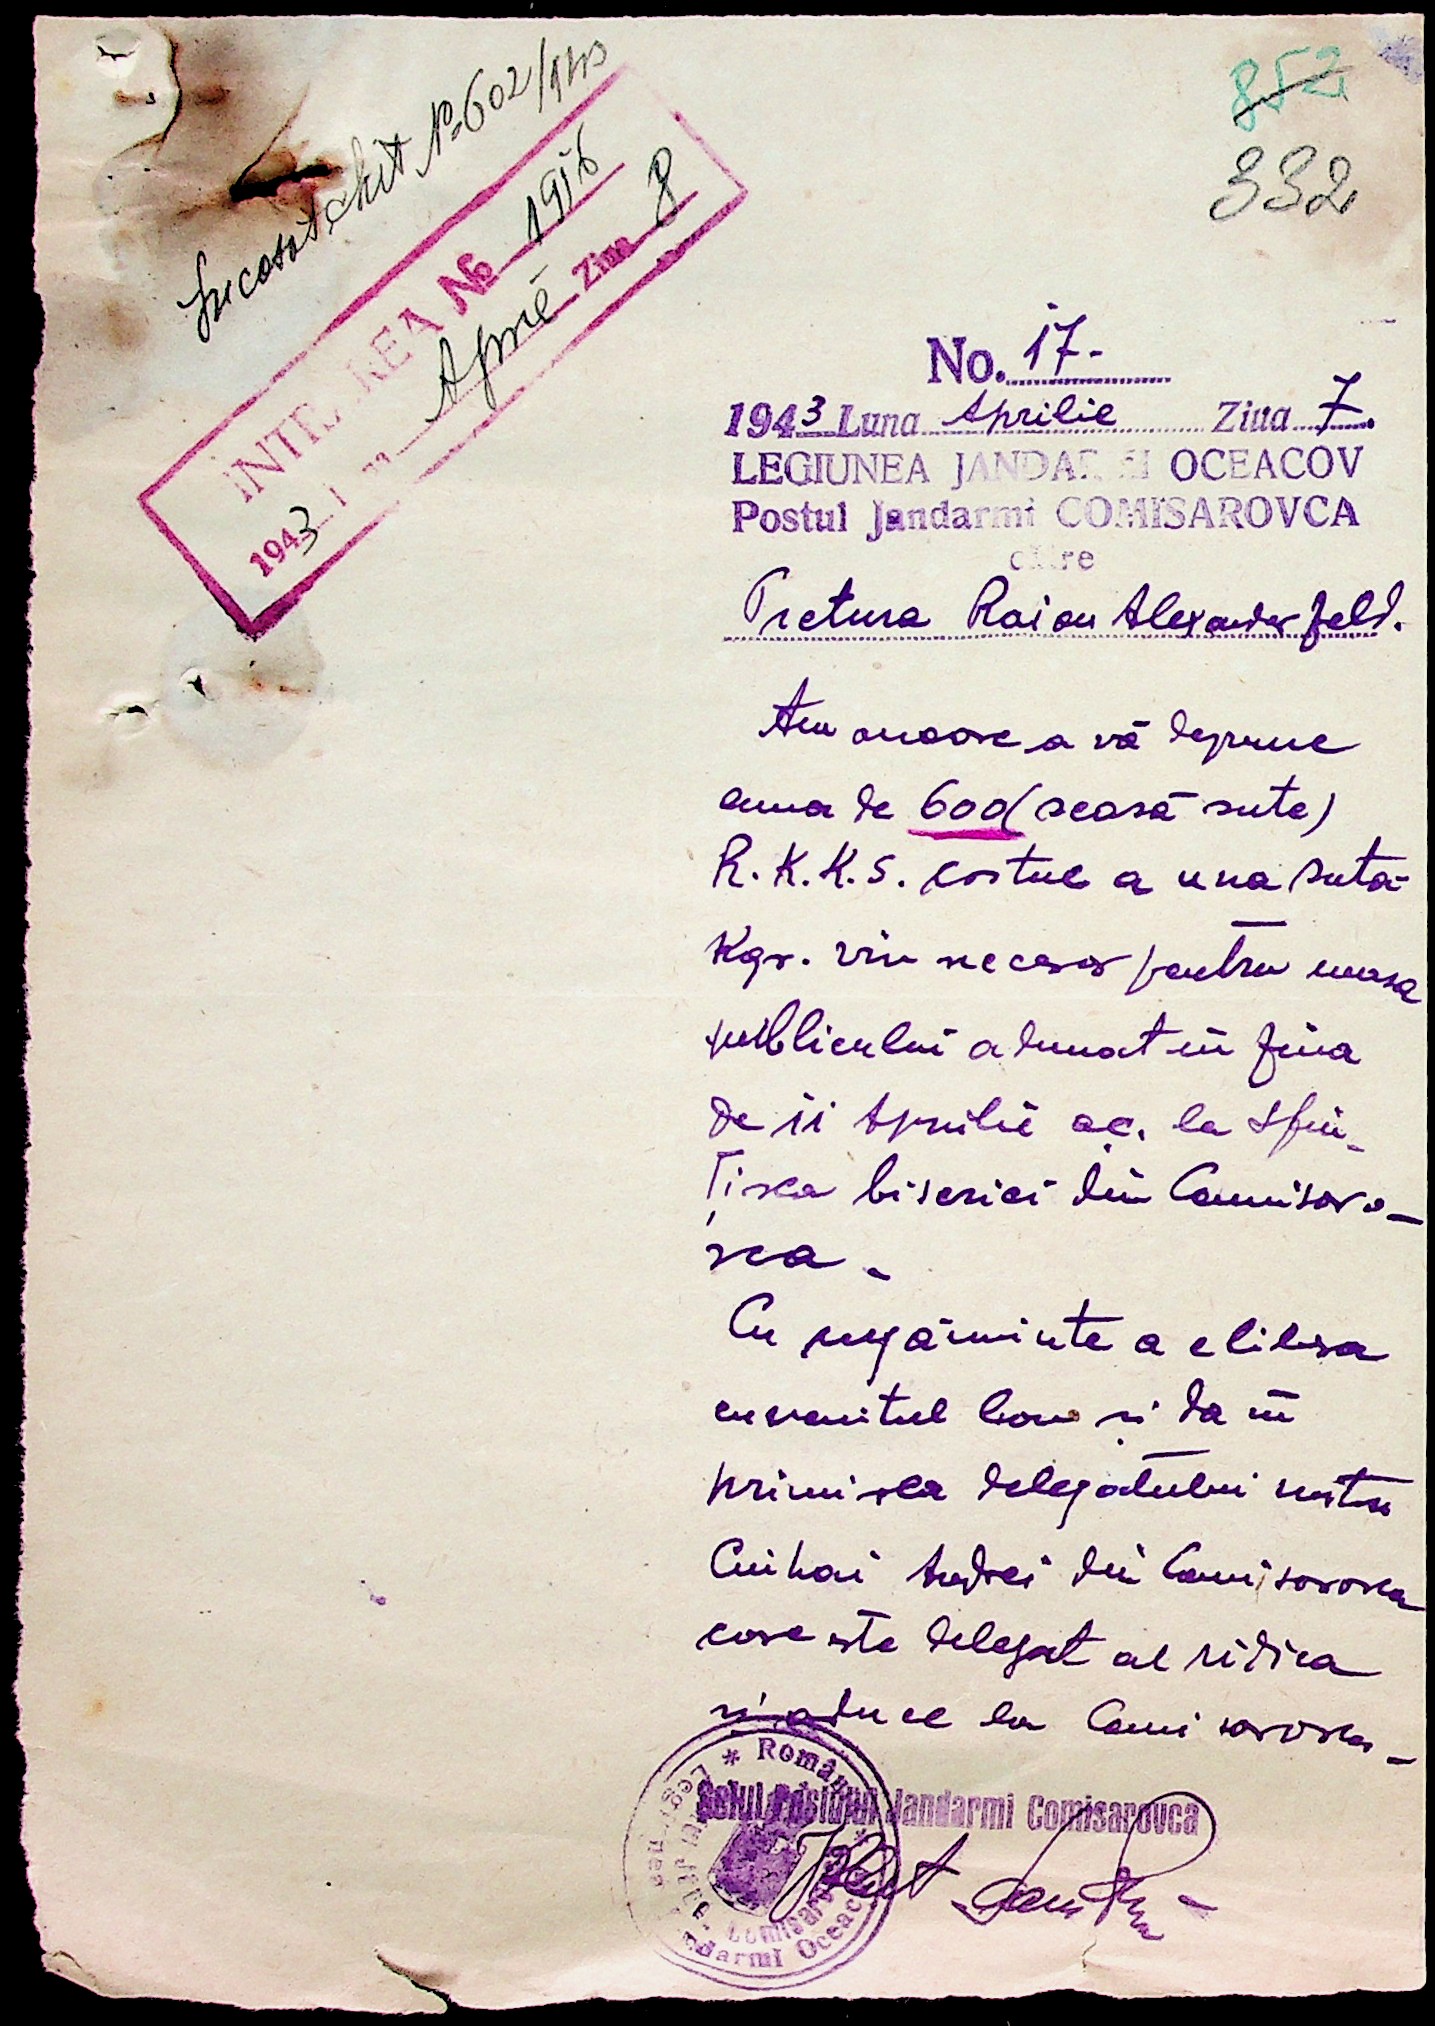 852
332
Încasat chit No 602/943
INTRAREA No 1916
1943 Aprilie Ziua 8
No. 17.-
1943 Luna Aprilie Ziua 7.
LEGIUNEA JANDARMI OCEACOV
Postul Jandarmi COMISAROVCA
către
Pretura Raion Alexanderfeld.
Am onoare a vă depune
suma de 600 (șeasă sute)
R.K.K.S. costul a una sută
Kgr. vin necesar pentru masa
publicului adunat în ziua
de 11 Aprilie ac. la sfin-
țirea bisericei din Comisaro-
vca.
Cu rugăminte a elibera
cuvenitul bon și da în
primirea delegatului nostru
Mihai Andrei din Comisarovca
care este delegat al ridica
și aduce la Comisarovca.-
Șeful Postului Jandarmi Comisarovca
România
Legiunea Jandarmi Oceacov
Comisarovca